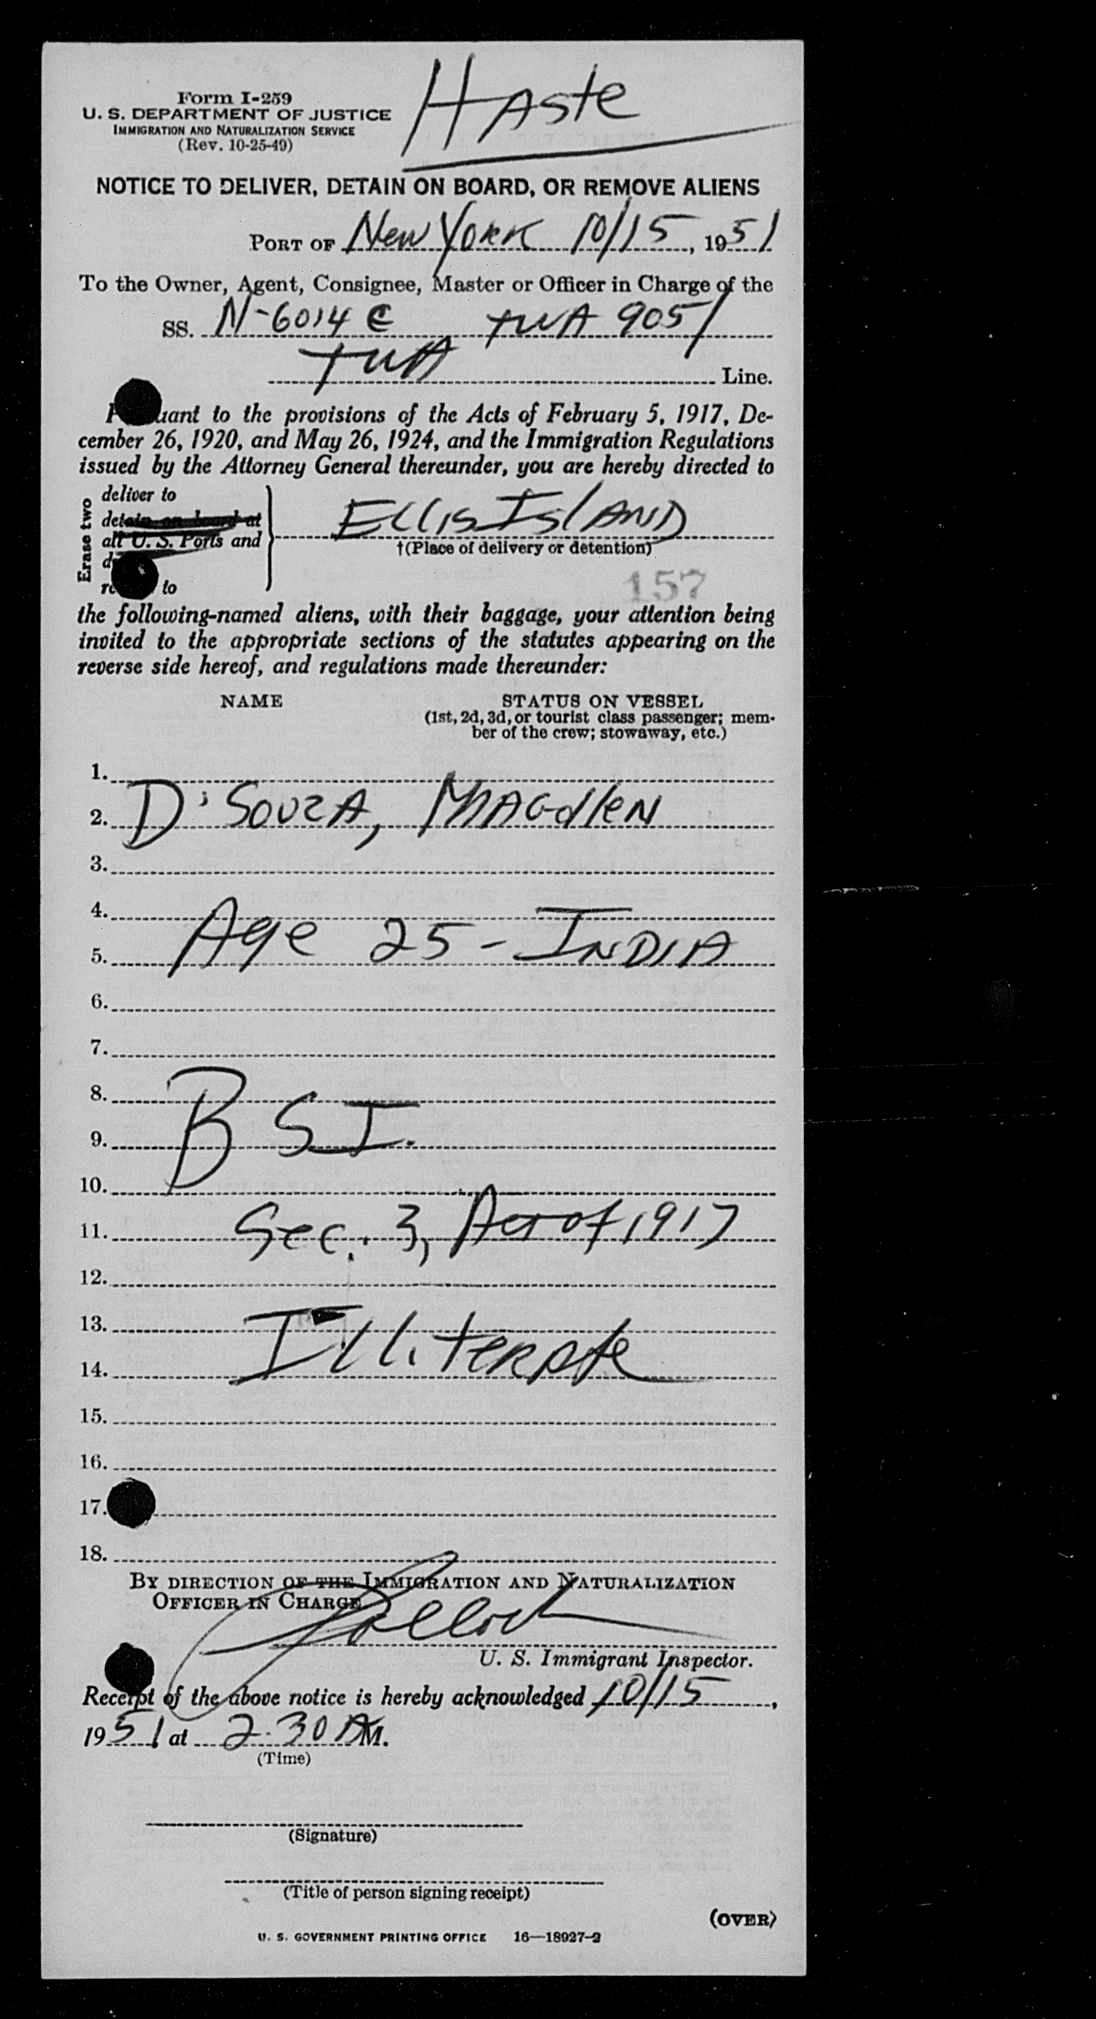 Form I-259
U. S. DEPARTMENT OF JUSTICE
IMMIGRATION AND NATURALIZATION SERVICE
(Rev. 10-25-49)
HAste
NOTICE TO DELIVER, DETAIN ON BOARD, OR REMOVE ALIENS
PORT OF New York 10/15, 1951
To the Owner, Agent, Consignee, Master or Officer in Charge of the
SS. N-6014 C TWA 905/
TWA Line.
to the provisions of the Acts of February 5, 1917, De-
cember 26, 1920, and May 26, 1924, and the Immigration Regulations
issued by the Attorney General thereunder, you are hereby directed to
Erase two
deliver to
detain on board at
all U. S. Ports and
to
Ellis Island
†(Place of delivery or detention)
157
the following-named aliens, with their baggage, your attention being
invited to the appropriate sections of the statutes appearing on the
reverse side hereof, and regulations made thereunder:
NAME STATUS ON VESSEL
(1st, 2d, 3d, or tourist class passenger; mem-
ber of the crew; stowaway, etc.)
1.
2. D'Souza, Magdlen
3.
4.
5. Age 25 - India
6.
7.
8.
9. B S I.
10.
11. Sec. 3, Act of 1917
12.
13.
14. Illiterate
15.
16.
17.
18.
BY DIRECTION OF THE IMMIGRATION AND NATURALIZATION
OFFICER IN CHARGE
Pollock
U. S. Immigrant Inspector.
Receipt of the above notice is hereby acknowledged 10/15,
1951 at 2:30 AM.
(Time)
(Signature)
(Title of person signing receipt)
(OVER)
U. S. GOVERNMENT PRINTING OFFICE 16—18927-2